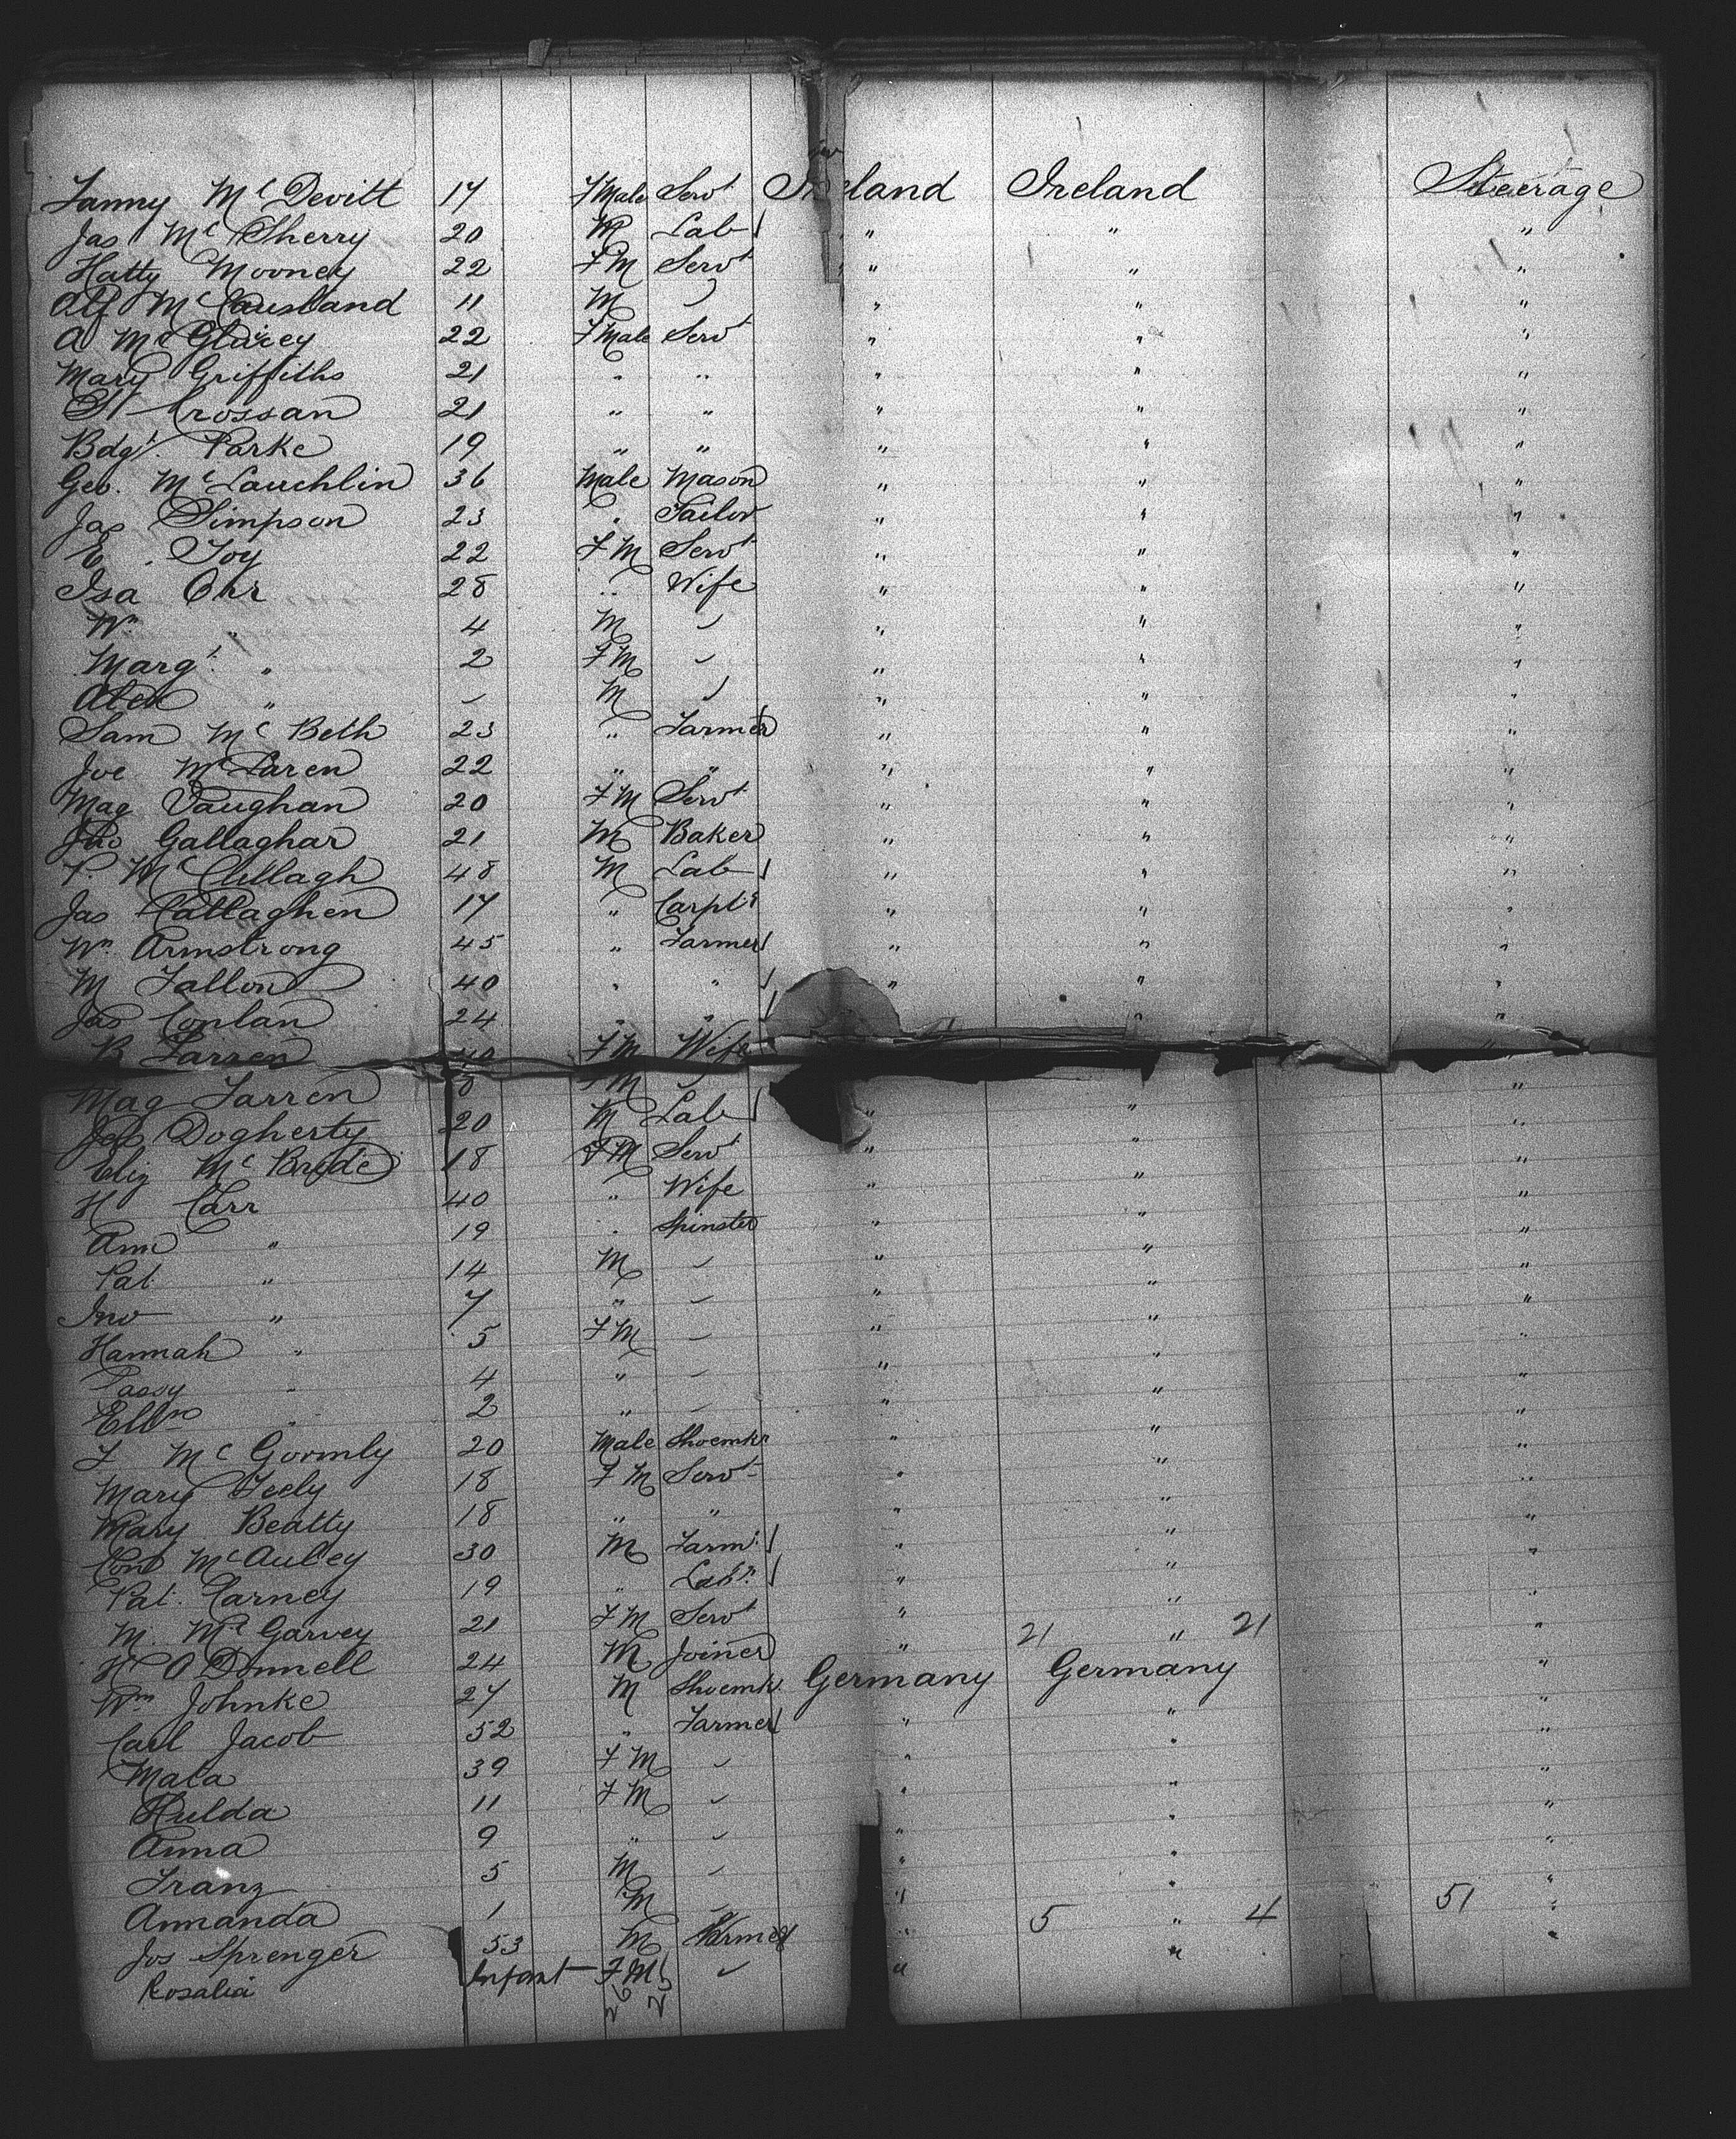 Fanny McDevitt 17 FMale Servt Ireland Ireland Steerage
Jas McSherry 20 M Lab " " "
Hatty Mooney 22 FM Servt " " "
Alf McCausland 11 M " " "
A McGlarey 22 FMale Servt " " "
Mary Griffiths 21 " " " " "
Crossan 21 " " " " "
Bdgt. Parke 19 " " " " "
Geo. McLauchlin 36 Male Mason " " "
Jas Simpson 23 " Tailor " " "
E. Foy 22 FM Servt " " "
Isa Orr 28 " Wife " " "
Wm " 4 M " " "
Margt. " 2 FM " " "
Alex " M " " "
Sam McBeth 23 " Farmer " " "
Joe McLaren 22 " " " " "
Mag Vaughan 20 FM Servt " " "
Gallaghar 21 M Baker " " "
P. McCullagh 48 M Lab " " "
Jas Callaghen 17 " Carptr " " "
Wm Armstrong 45 " Farmer " " "
M Fallon 40 " " " " "
Jas Conlan 24 " " " "
B Farren FM Wife "
Mag Farren 8 FM "
Jas Dogherty 20 M Lab " " "
Eliz McBride 18 FM Servt " " "
H Carr 40 " Wife " " "
Ann " 19 " Spinster " " "
Pat " 14 M " " "
Jno " 7 " " " "
Hannah " 5 FM " " "
Passy " 4 " " " "
Ellen " 2 " " " "
F McGormly 20 Male Shoemkr " " "
Mary Feely 18 FM Servt " " "
Mary Beatty 18 " " " " "
Con McAuley 30 M Farm. " " "
Pat. Carney 19 " Labr. " " "
M. McGarvey 21 FM Servt " 21 " 21 "
H O'Donnell 24 M Joiner "
Wm Johnke 27 M Shoemkr Germany Germany "
Carl Jacob 52 " Farmer " " "
Mala 39 FM " " "
Hulda 11 FM " " "
Anna 9 " " " "
Franz 5 M " " "
Amanda 1 M " 5 " 4 51 "
Jos Sprenger 53 M Farmer " " "
Rosalia Infant FM "
26 25